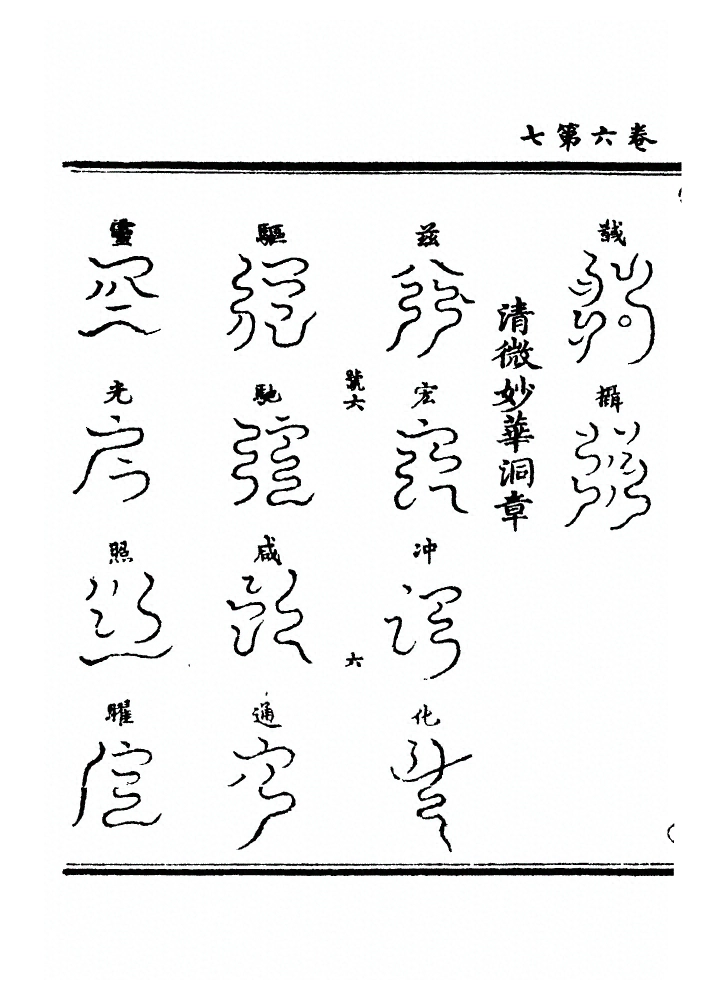 卷六第七
誠
擗
清微妙華洞章
茲宏冲化
號六
六
驅馳咸通
靈光照曜